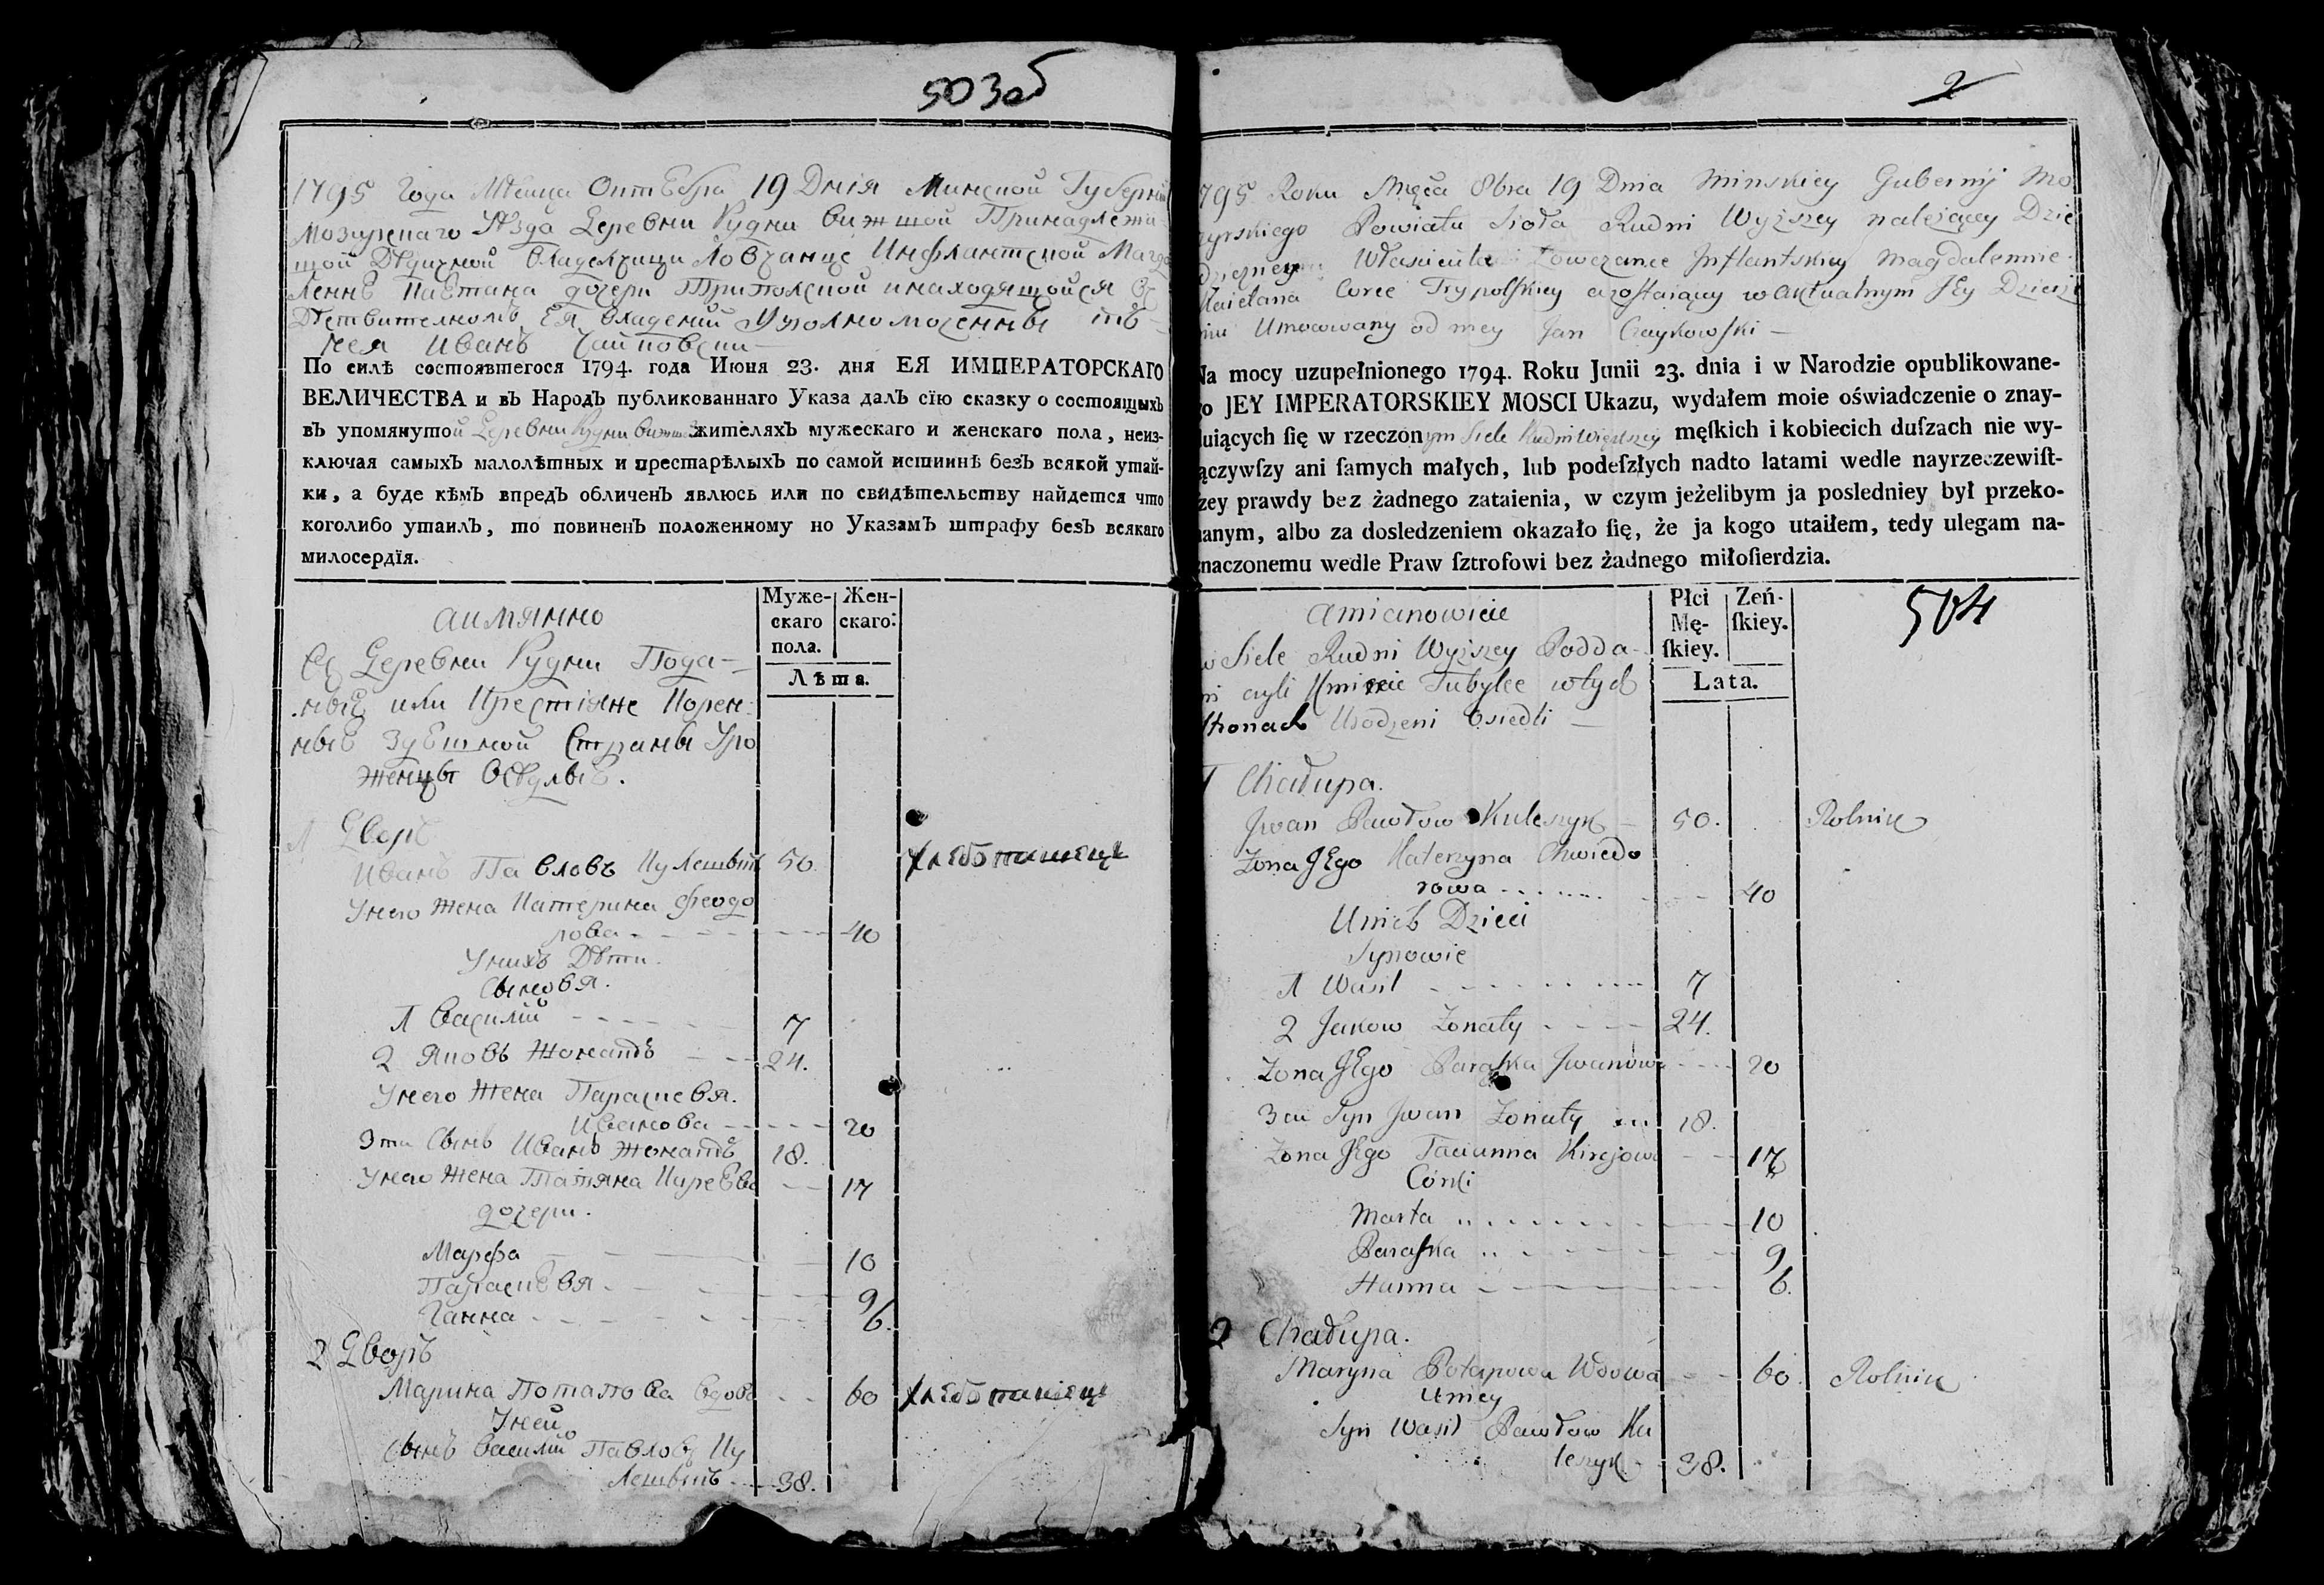 503об
1795 Года Мѣсяца Октѣбра 19 Дния Минской Губерніи
Мозырскаго Уѣзда Деревни Рудни Вижшой Принадлежа-
щой Дѣдичной Владелчици Ловчанце Инфлантской Магда
леннѣ Каетана дочери Триполской и находящойся въ
Дѣтвителномъ Ея владении Уполномоченны отъ
нея Иванъ Чайковски
По силѣ состоявшегося 1794. года Июня 23. дня ЕЯ ИМПЕРАТОРСКАГО
ВЕЛИЧЕСТВА и въ Народъ публикованнаго Указа далъ сїю сказку о состоящыхъ
въ упомянутой Деревни Рудни Вижшой жителяхъ мужескаго и женскаго пола, неиз-
ключая самыхъ малолѣтныхъ и престарѣлыхъ по самой истиннѣ безъ всякой утай-
ки, а буде кѣмъ впредъ обличенъ явлюсь или по свидѣтельству найдется что
коголибо утаилъ, то повиненъ положенному по Указамъ штрафу безъ всякаго
милосердїя.
аимянно
Муже-
скаго
пола.
Жен-
скаго:
Лѣта.
Въ Деревни Рудни Пода-
ные или Крестіяне Корен-
ные здешной Страны Уро
женцы Оседлые.
1 Дворъ
Иванъ Павловъ Кулешыкъ 50. хлебопашецъ
Унего Жена Катерина Феодо
рова - - - 40
Унихъ Дѣти.
Сыновя.
1 Василий - - - 7
2 Яковъ Жонатъ - - - 24.
Унего Жена Параскевя.
Иванова - - - 20
3ти Сынъ Иванъ Жонатъ 18.
Унего Жена Татяна Кирѣева - - 17
дочери.
Марфа - - - 10
Параскевя - - - 9
Ганна - - - 6.
2 Дворъ
Марина Потапова вдова - - 60 хлебопашецъ
Уней
Сынъ Василий Павловъ Ку
лешыкъ - - 38.
2
795 Roku Mięca 8bra 19 Dnia Minskiey Gubernij Mo
zyrskiego Powiatu Sioła Rudni Wyższey należącey Dzie
dziczney Właścicielce Łowczance Inflantskiey Magdalennie
Kaietana Corce Trypolskiey azostaiącey w aktualnym JEy Dzierże
niu Umocowany od niey Jan Czaykowski —
Na mocy uzupełnionego 1794. Roku Junii 23. dnia i w Narodzie opublikowane-
go JEY IMPERATORSKIEY MOSCI Ukazu, wydałem moie oświadczenie o znay-
duiących ſię w rzeczonym Siele Rudni Więższey męſkich i kobiecich duſzach nie wy-
łączywſzy ani ſamych małych, lub podeſzłych nadto latami wedle nayrzeczewiſt-
szey prawdy bez żadnego zataienia, w czym jeżelibym ja posledniey był przeko-
nanym, albo za dosledzeniem okazało ſię, że ja kogo utaiłem, tedy ulegam na-
znaczonemu wedle Praw ſztrofowi bez żadnego miłoſierdzia.
amianowicie
Płci
Mę-
ſkiey.
Zeń-
ſkiey.
Lata.
504
w Siele Rudni Wyższey Podda-
ni czyli Kmiecie Tubylce w tych
Stronach Urodzeni Osiedli —
1 Chałupa.
Jwan Pawłow Kuleszyk — 50. Rolnik
Zona JEgo Katerzyna Chwiedo
rowa - - - 40
Unich Dzieci
Synowie
1 Wasil - - - 7
2 Jakow Zonaty - - - 24.
Zona JEgo Paraska Jwanowa - - - 20
3ci Syn Jwan Zonaty ... 18.
Zona JEgo Tacianna Kirejowa - - 17
Córki
Marta - - - 10
Paraska - - - 9
Hanna - - - 6.
2 Chałupa.
Maryna Potapowa Wdowa - - 60. Rolnik
Uniey
Syn Wasil Pawłow Ku
leszyk - 38.